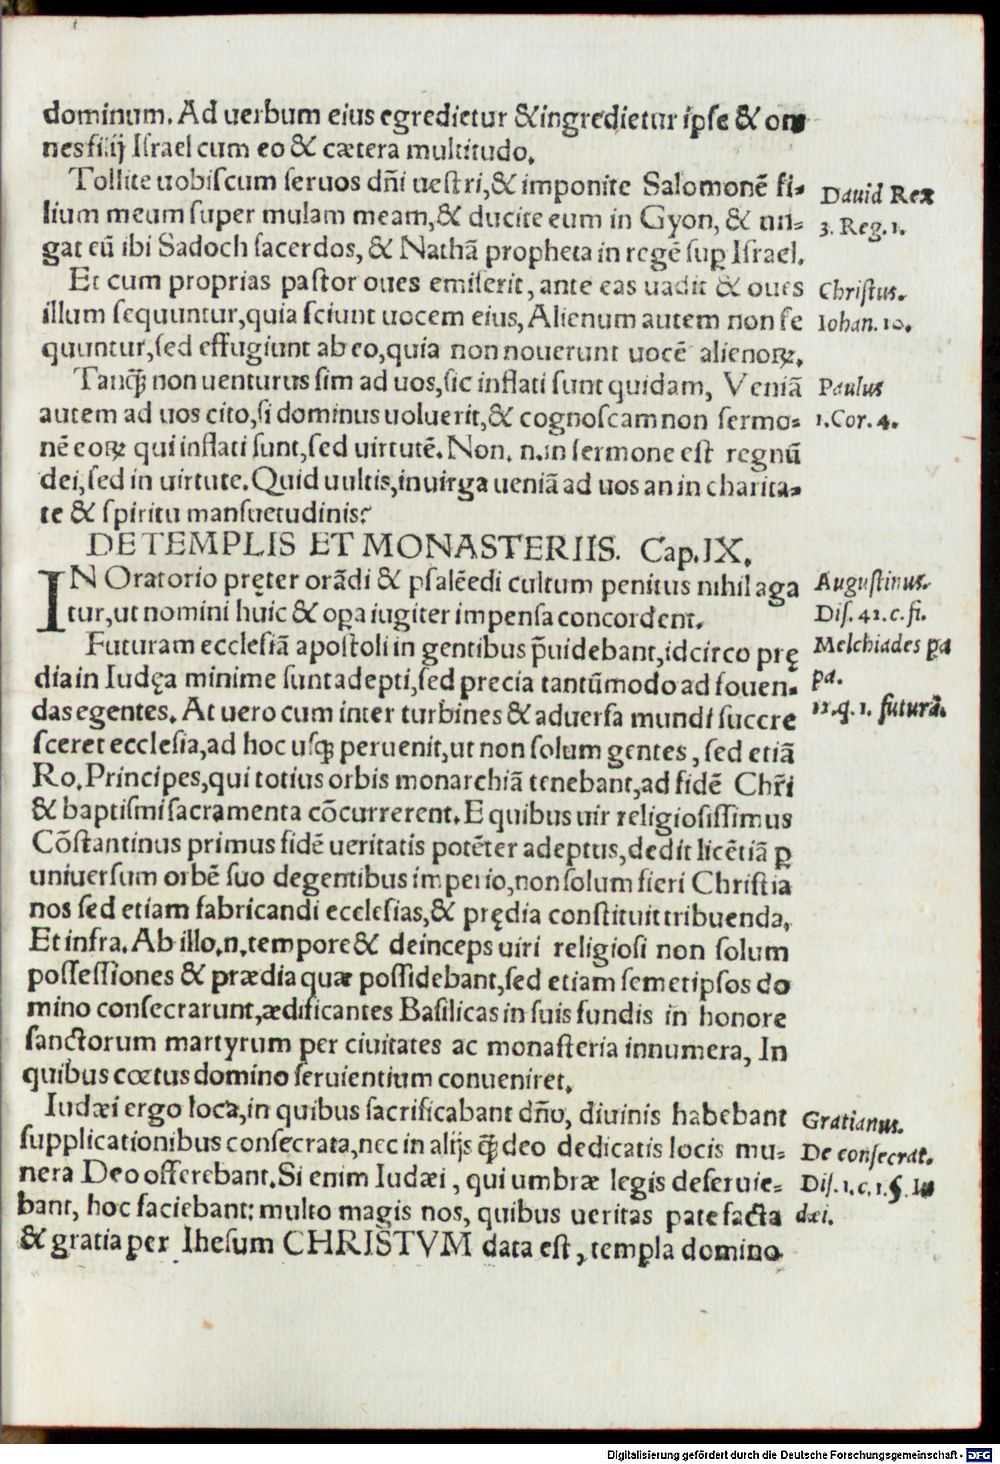 dominum. Ad uerbum eius egredietur &ingredietur ipse & om
nes filij Israel cum eo & cætera multitudo.
Tollite uobiscum seruos dñi uestri,& imponite Salomonē fi-
lium meum super mulam meam,& ducite eum in Gyon, & un-
gat eū ibi Sadoch sacerdos, & Nathā propheta in regē suꝑ Israel.
David Rex
3. Reg. 1.
Et cum proprias pastor oues emiserit, ante eas uadit & oues
illum sequuntur,quia sciunt uocem eius, Alienum autem non se
quuntur,sed effugiunt ab eo,quia non nouerunt uocē alienoꝝ.
Christus.
Iohan. 10.
Tanꝙ non uenturus sim ad uos,sic inflati sunt quidam, Veniā
autem ad uos cito,si dominus uoluerit,& cognoscam non sermo-
nē eoꝝ qui inflati sunt,sed uirtutē. Non. n.in sermone est regnū
dei,sed in uirtute. Quid uultis,in uirga ueniā ad uos an in charita-
te & spiritu mansuetudinis?
Paulus
1. Cor. 4.
DE TEMPLIS ET MONASTERIIS. Cap.IX.
IN Oratorio pręter orādi & psalēdi cultum penitus nihil aga
tur,ut nomini huic & oꝑa iugiter impensa concordent.
Augustinus.
Dis. 42. c. fi.
Futuram ecclesiā apostoli in gentibus p̃uidebant,idcirco prę
dia in Iudęa minime sunt adepti,sed precia tantūmodo ad fouen-
das egentes. At uero cum inter turbines & aduersa mundi succre
sceret ecclesia,ad hoc usꝙ peruenit,ut non solum gentes, sed etiā
Ro. Principes,qui totius orbis monarchiā tenebant,ad fidē Chr̃i
& baptismi sacramenta cōcurrerent. E quibus uir religiosissimus
Cōstantinus primus fidē ueritatis potēter adeptus,dedit licētiā ꝑ
uniuersum orbē suo degentibus imperio,non solum fieri Christia
nos sed etiam fabricandi ecclesias,& prędia constituit tribuenda.
Et infra. Ab illo.n.tempore & deinceps uiri religiosi non solum
possessiones & prædia quæ possidebant,sed etiam semetipsos do
mino consecrarunt,ædificantes Basilicas in suis fundis in honore
sanctorum martyrum per ciuitates ac monasteria innumera, In
quibus cœtus domino seruientium conueniret.
Melchiades pa
pa.
12.q. 1. futurā.
Iudæi ergo loca,in quibus sacrificabant dño, diuinis habebant
supplicationibus consecrata,nec in alijs ꝙ deo dedicatis locis mu-
nera Deo offerebant. Si enim Iudæi, qui umbræ legis deseruie-
bant, hoc faciebant: multo magis nos, quibus ueritas patefacta
& gratia per Ihesum CHRISTVM data est, templa domino
Gratianus.
De consecrat.
Dis. 1. c. 1. §. Iu
dæi.
Digitalisierung gefördert durch die Deutsche Forschungsgemeinschaft - DFG